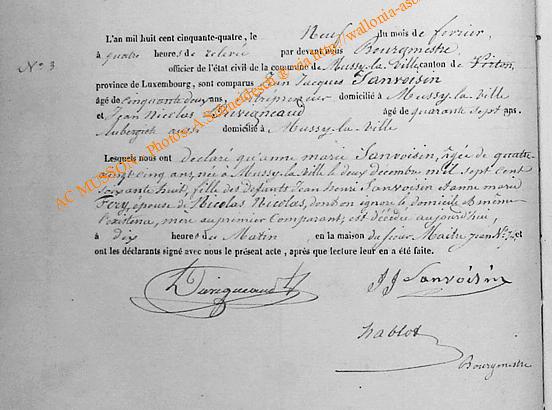 L'an mil huit cent cinquante-quatre, le Neuf du mois de février,
N° 3
à quatre heures de relevé par devant nous Bourgmestre
officier de l'état civil de la commune de Mussy-la-Ville canton de Virton,
province de Luxembourg, sont comparus Jean Jacques Sanvoisin
âgé de cinquante deux ans, domicilié à Mussy-la-Ville
et Jean Nicolas âgé de quarante sept ans.
Aubergiste aussi domicilié à Mussy-la-Ville
Lesquels nous ont déclaré qu'anne marie Sanvoisin, âgée de quatre
vingt cinq ans, née à Mussy-la-Ville le deux décembre mil sept cent
soixante huit, fille des défunts Jean Henri Sanvoisin et anne marie
Fery, épouse de Nicolas Nicolas, dont on ignore le domicile et même
l'existence, mère au premier Comparant, est décédée aujourd'hui,
à dix heures du Matin, en la maison du sieur Maitre Jean
ont les déclarants signé avec nous le présent acte, après que lecture leur en a été faite.
JJ Sanvoisin
Hablot
Bourgmestre
AC MUSSON Photos: A.Schneidesch ® via http://wallonia-asbl